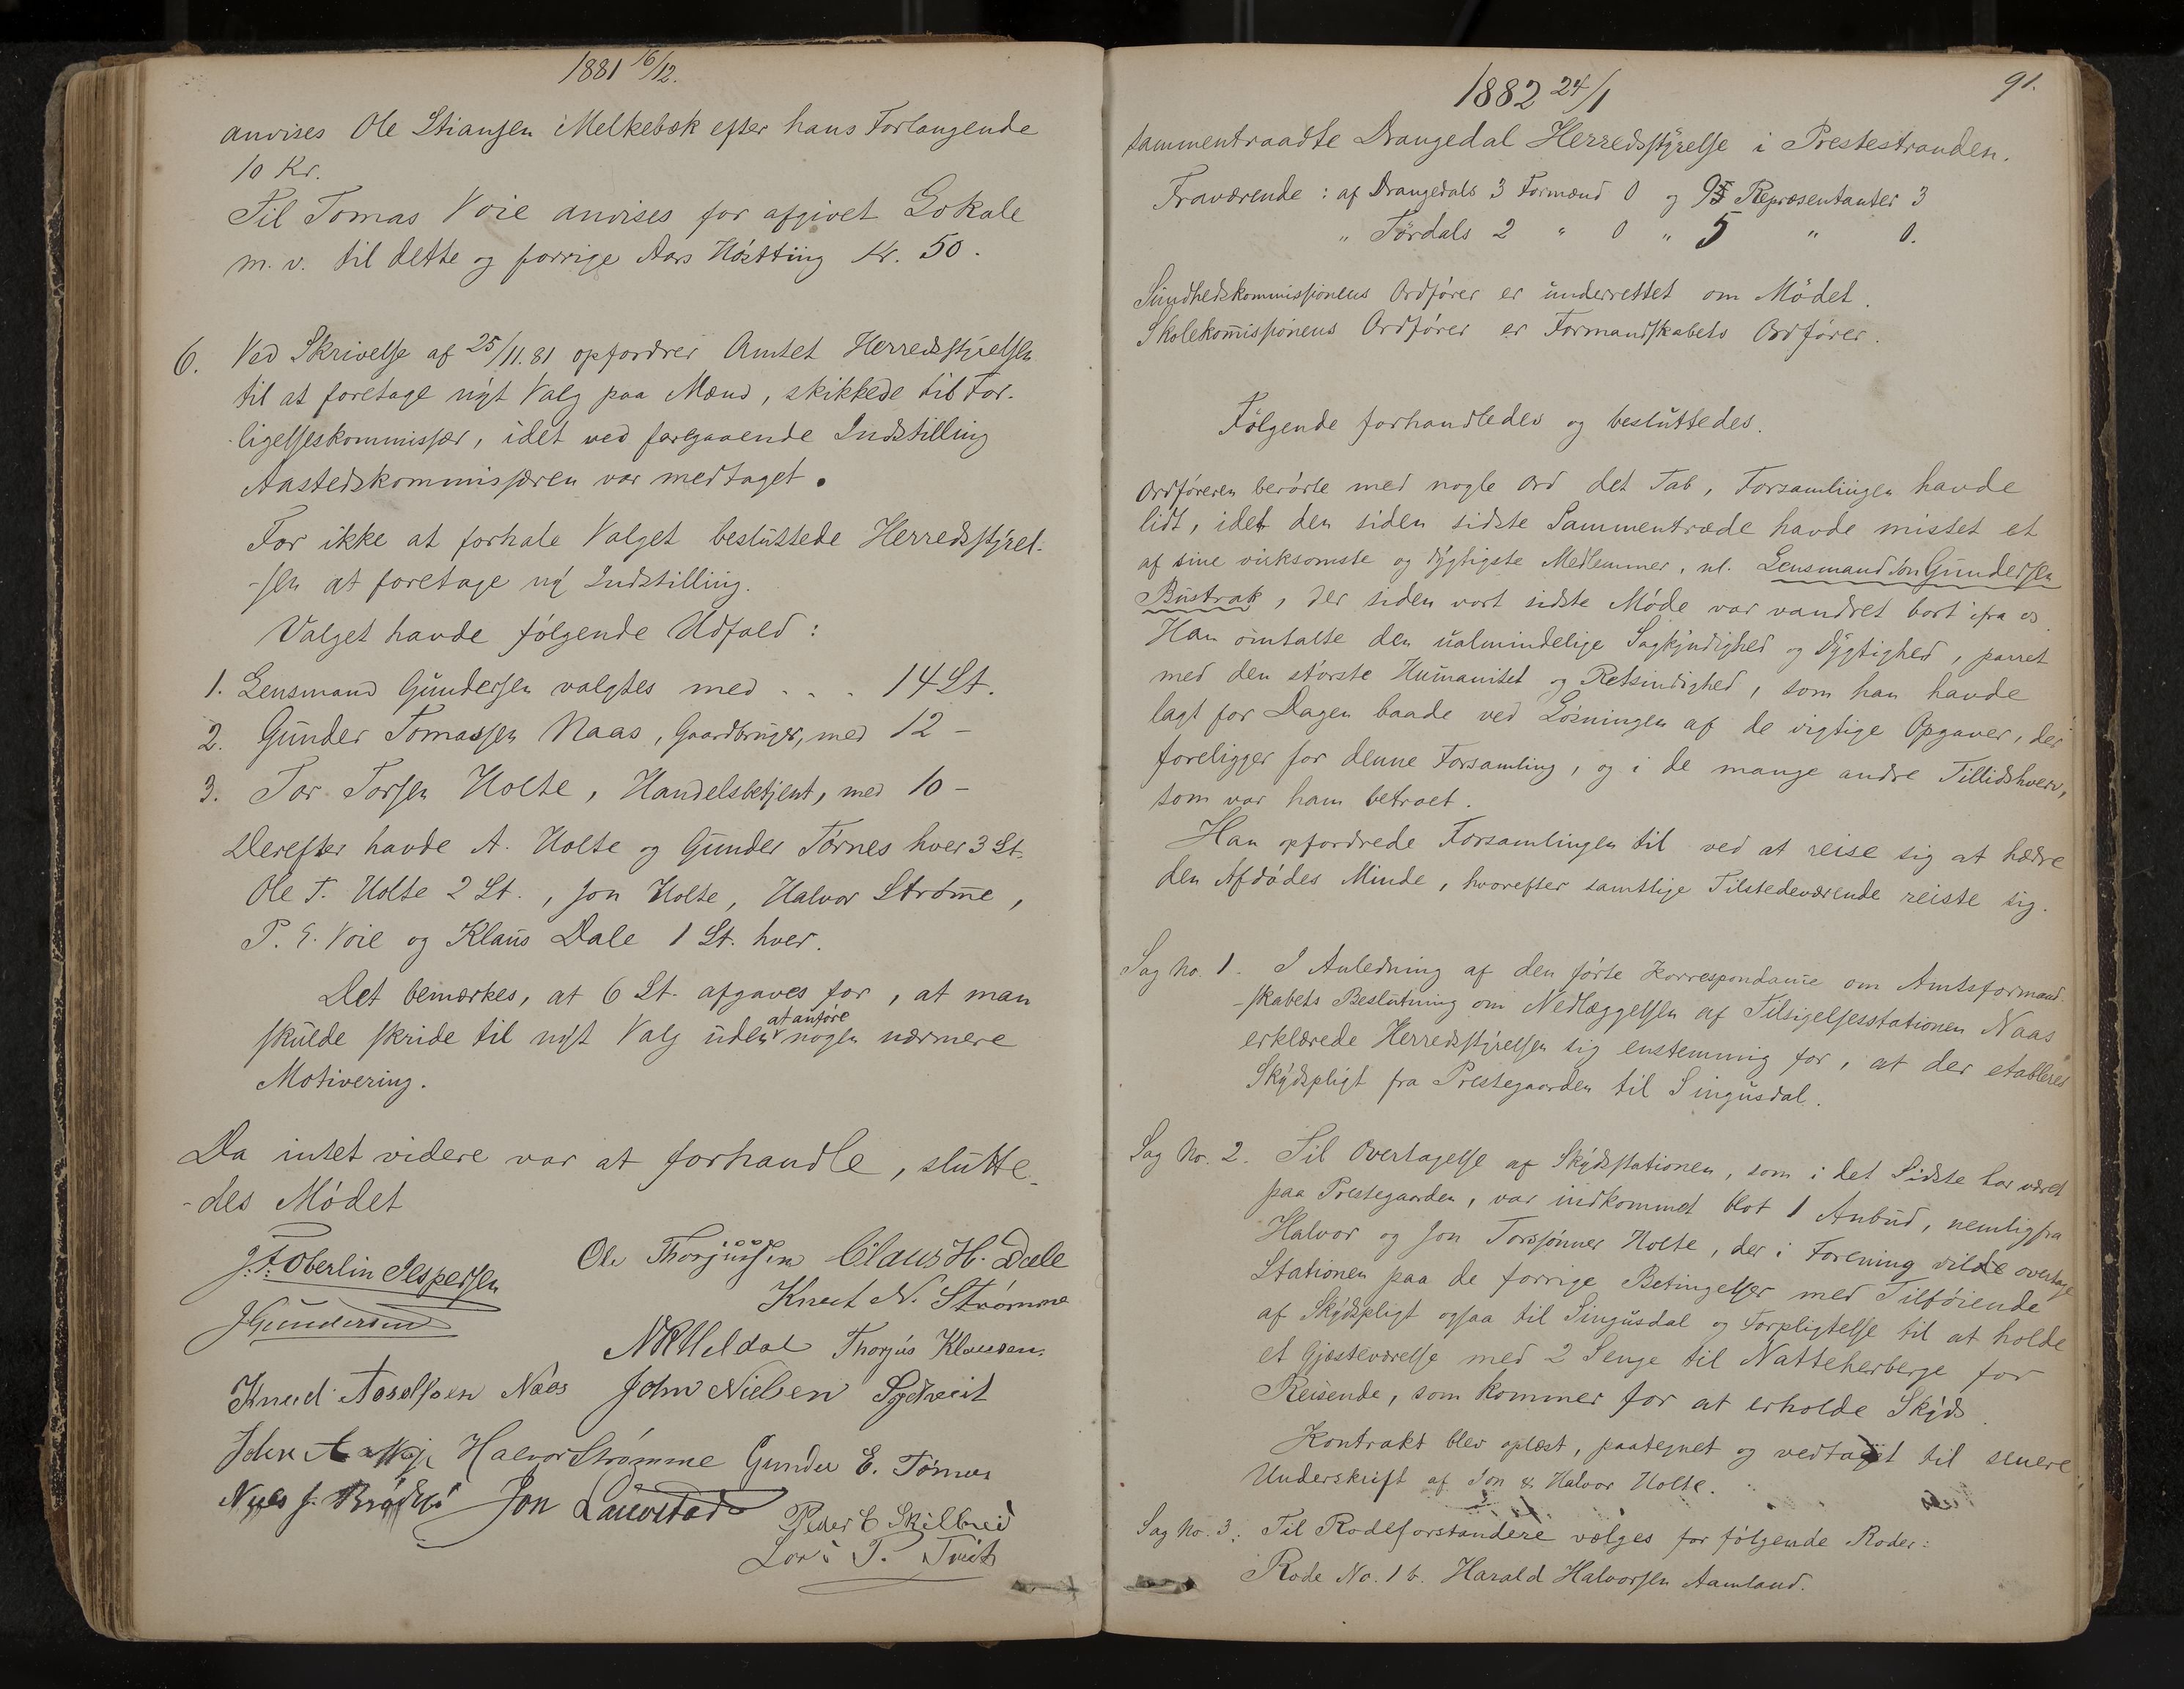 1881 16/12.
anvises Ole Stiansen Melkebæk efter hans Forlangende
10 Kr.
Til Tomas Voie anvises for afgivet Lokale
m. v. til dette og forrige Aars Høstting Kr. 50.
6. Ved Skrivelse af 25/11.81 opfordrer Amtet Herredsstyrelsen
til at foretage nyt Valg paa Mænd, skikkede til For-
ligelseskommissær, idet ved foregaaende Indstilling
Aastedskommissæren var medtaget.
For ikke at forhale Valget besluttede Herredsstyrel-
-sen at foretage ny Indstilling.
Valget havde følgende Udfald:
1. Lensmand Gundersen valgtes med . . . 14 St.
2. Gunder Tomassen Naas, Gaardbruger, med 12 -
3. Tor Torsen Holte, Handelsbetjent, med 10 -
Derefter havde A. Holte og Gunder Tørnes hver 3 St.
Ole T. Holte 2 St., Jon Holte, Halvor Strøm̅e,
P. E. Voie og Klaus Dale 1 St. hver.
Det bemærkes, at 6 St. afgaves for, at man
at anføre
skulde skride til nyt Valg uden nogen nærmere
Motivering.
Da intet videre var at forhandle, slutte-
-des Mødet
J. F. Oberlin Jespersen Ole Thorjussen Claus H. Dale
JGundersen Knut N. Strømme
Thorjus Klausen.
Knud Aasolfsen Naas John Nielsen
John Halvor Strømme Gunder E. Tørnes
Jon Lauvstad
Peder E Skilbreid
1882 24/1
91.
sammentraadte Drangedal Herredsstyrelse i Prestestranden.
Fraværende: af Drangedals 3 Formænd 0 og 9 Repræsentanter 3
" Tørdals 2 " 0 " 5 " 0.
Sundhedskommissionens Ordfører er underrettet om Mødet.
Skolekom̅issionens Ordfører er Formandskabets Ordfører.
Følgende forhandledes og besluttedes.
Ordføreren berørte med nogle Ord det Tab, Forsamlingen havde
lidt, idet den siden sidste Sammentræde havde mistet et
af sine virksomste og dygtigste Medlemmer, nl. Lensmand Jon Gundersen
Bustrak, der siden vort sidste Møde var vandret bort ifra os.
Han omtalte den ualmindelige Sagkyndighed og Dygtighed, parret
med den største Humanitet og Retsindighed, som han havde
lagt for Dagen baade ved Løsningen af de vigtige Opgaver, der
foreligger for denne Forsamling, og i de mange andre Tillidshverv,
som var ham betroet.
Han opfordrede Forsamlingen til ved at reise sig at hædre
den Afdødes Minde, hvorefter samtlige Tilstedeværende reiste sig.
Sag No. 1. I Anledning af den førte Korrespondan̅e om Amtsformand-
-skabets Beslutning om Nedlæggelsen af Tilsigelsesstationen Naas
erklærede Herredsstyrelsen sig enstemmig for, at der etableres
Skydspligt fra Prestegaarden til Singusdal.
Sag No. 2. Til Overtagelse af Skydsstationen, som i det Sidste har været
paa Prestegaarden, var indkommet blot 1 Anbud, nemlig fra
Halvor og Jon Torssønner Holte, der i Forening vilde overtage
Stationen paa de forrige Betingelser med Tilføiende
af Skydspligt ogsaa til Singusdal og Forpligtelse til at holde
et Gjæsteværelse med 2 Senge til Natteherberge for
Reisende, som kommer for at erholde Skyds.
Kontrakt blev oplæst, paategnet og vedtaget til senere
Underskrift af Jon & Halvor Holte.
Sag No. 3. Til Rodeforstandere vælges for følgende Roder:
Rode No. 1 b. Harald Halvorsen Aamland.